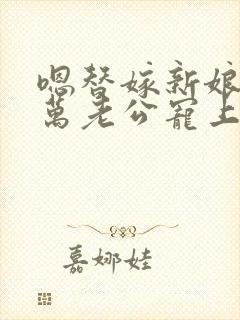 嗯替嫁新娘
萬老公寵上
嘉娜娃